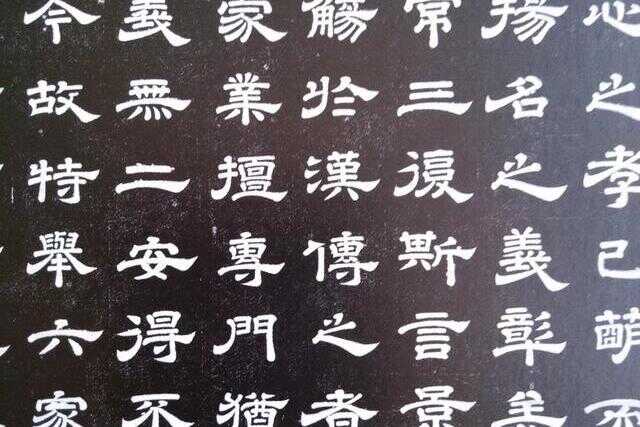 心之孝已萌而
揚名之義彰矣
常三復斯言景
觴於漢傳之者
家業擅專門猶
義無二安得不
今故特舉六家